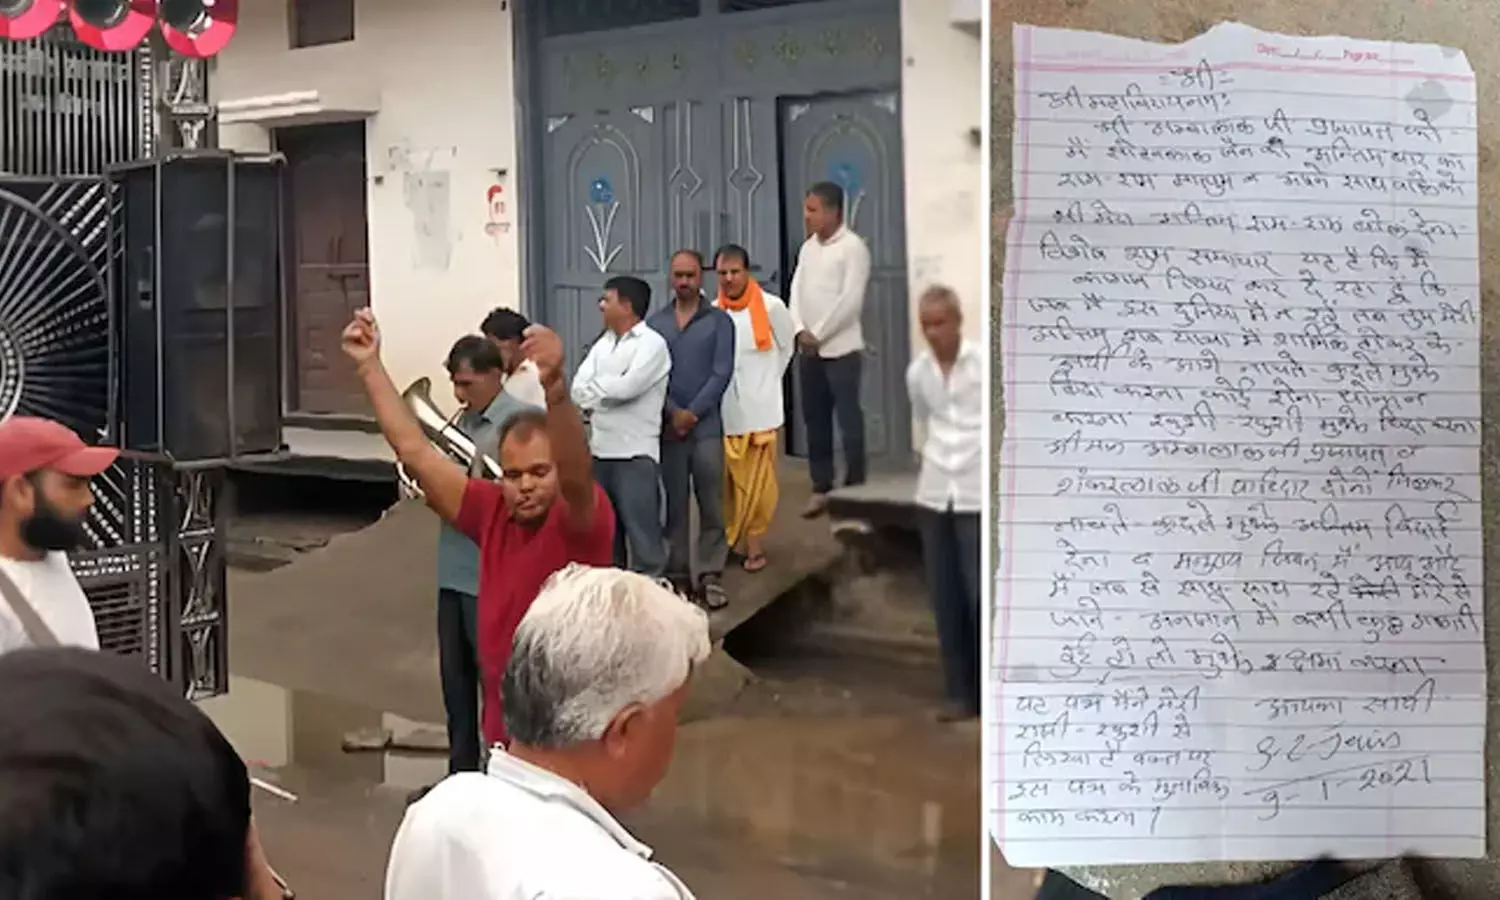 Date: / / Page no.
= श्री =
श्री महाविरायनमः
श्री अम्बालाल जी प्रजापत को
मैं सोहनलाल जैन की अन्तिम बार का
राम-राम मालुम व अपने साथ वाले को
भी मेरा अन्तिम राम-राम बोल देना
विशेष शुभ समाचार यह है कि मैं
कायम लिख कर दे रहा हूं कि
जब मैं इस दुनिया में न रहूँ तब तुम मेरी
अन्तिम शव यात्रा में शामिल होकर के
अर्थी के आगे नाचते-कुदते मुझे
बिदा करना कोई रोना-धोना न
करना खुशी-खुशी मुझे विदा करना
श्रीमान अम्बालाल जी प्रजापत व
शंकरलाल जी पाटिदार दोनों मिलकर
नाचते-कुदते मुझे अन्तिम विदाई
देना व मनुष्य जिवन में आप और
मैं जब से साथ-साथ रहे मेरे से
जाने-अनजाने में कभी कुछ गलती
हुई हो तो मुझे क्षमा करना
यह पत्र मैंने मेरी
राजी-खुशी से
लिखा है वक्त पर
इस पत्र के मुताबिक
काम करना।
आपका साथी
S. L. Jain
9-1-2021